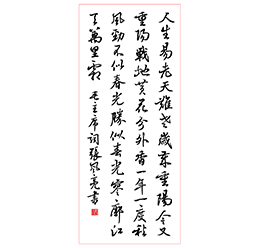 人生易老天難老歲歲重陽今又
重陽戰地黄花分外香一年一度秋
風勁不似春光勝似春光寥廓江
天萬里霜 毛主席词張风亮書